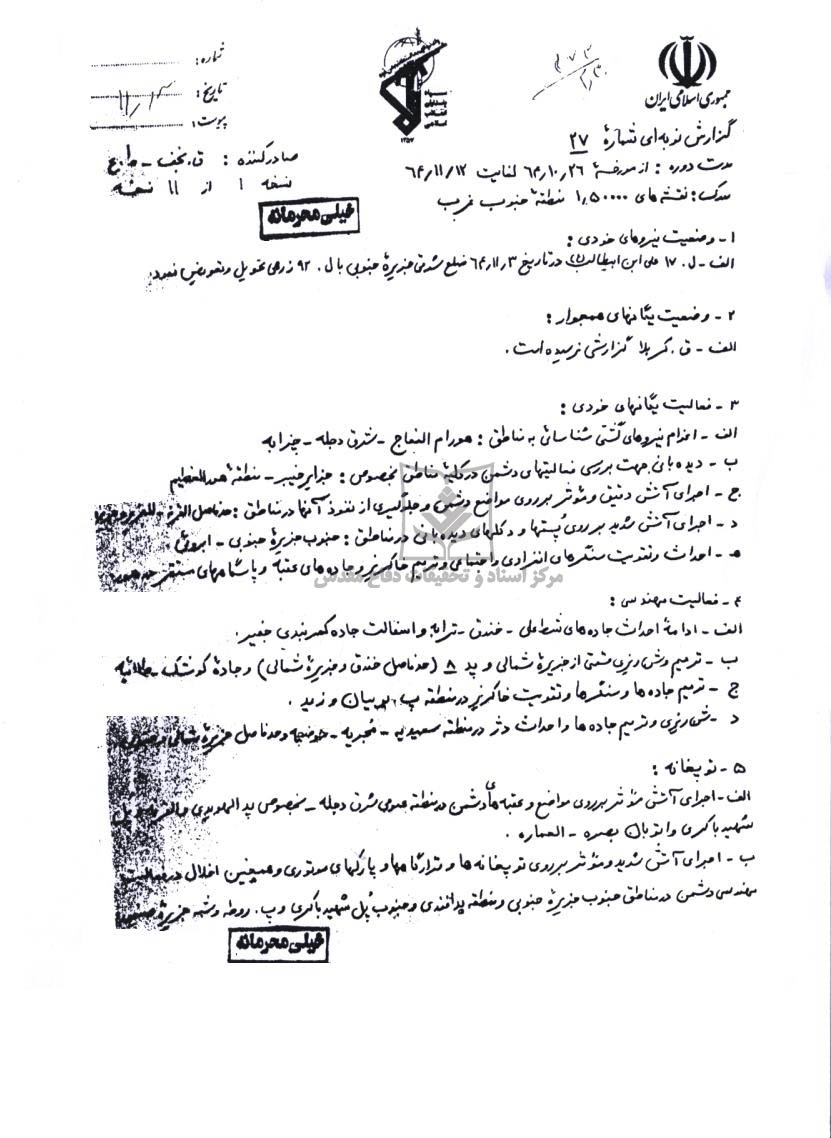 جمهوری اسلامی ایران
شماره:
تاریخ:
پیوست:
گزارش نوبه‌ای شمارهٔ ۲۷
مدت دوره: از مورخهٔ ۶۴،۱۰،۲۶ لغایت ۶۴،۱۱،۱۲
مدرک: نقشه‌های ۱،۵۰۰۰۰ منطقهٔ جنوب غرب
صادر کننده: ق. نجف - ط. ع
نسخه ۱ از ۱۱ نسخه
خیلی محرمانه
۱- وضعیت نیروهای خودی:
الف - ل. ۱۷ علی ابن ابیطالب (ع) در تاریخ ۶۴،۱۱،۳ ضلع شرقی جزیرهٔ جنوبی با ل. ۹۲ زرهی تحویل و تعویض نمود.
۲- وضعیت یگانهای همجوار:
الف - ق. کربلا گزارشی نرسیده است.
۳- فعالیت یگانهای خودی:
الف - اعزام نیروهای گشتی شناسائی به مناطق: هورام النعاج - شرق دجله - چزابه
ب - دیده‌بانی جهت بررسی فعالیتهای دشمن در کلیهٔ مناطق بخصوص: جزایر خیبر - منطقهٔ هورالعظیم
ج - اجرای آتش دقیق و مؤثر بر روی مواضع دشمن و جلوگیری از نفوذ آنها در مناطق: حدفاصل
د - اجرای آتش شدید بر روی پُستها و دکلهای دیده‌بانی در مناطق: جنوب جزیرهٔ جنوبی -
ه - احداث و تقویت سنگرهای انفرادی و اجتماعی و ترمیم خاکریز و جاده‌های عقبه و پاسگاههای مستقر در هور
مرکز اسناد و تحقیقات دفاع مقدس
۴- فعالیت مهندسی:
الف - ادامهٔ احداث جاده‌های شط علی - خندق - ترابه و اسفالت جاده کمربندی جفیر.
ب - ترمیم و شن ریزی قسمتی از جزیرهٔ شمالی و پد ۸ (حدفاصل خندق و جزیرهٔ شمالی) و جادهٔ کوشک - طلائیه
ج - ترمیم جاده‌ها و سنگرها و تقویت خاکریز در منطقه پ. بوبیان و زید.
د - شن ریزی و ترمیم جاده‌ها و احداث دژ در منطقه سعیدیه - - و حدفاصل جزیرهٔ شمالی و جنوبی
۵- توپخانه:
الف - اجرای آتش مؤثر بر روی مواضع و عقبه‌های دشمن در منطقه عمومی شرق دجله - بخصوص پد الهویدی و پل
شهید باکری و اتوبان بصره - العماره.
ب - اجرای آتش شدید و مؤثر بر روی توپخانه‌ها و قرارگاهها و پارکهای موتوری و همچنین اخلال در فعالیت
مهندسی دشمن در مناطق جنوب جزیرهٔ جنوبی و منطقه پدافندی و جنوب پُل شهید باکری و پ. روطه
خیلی محرمانه